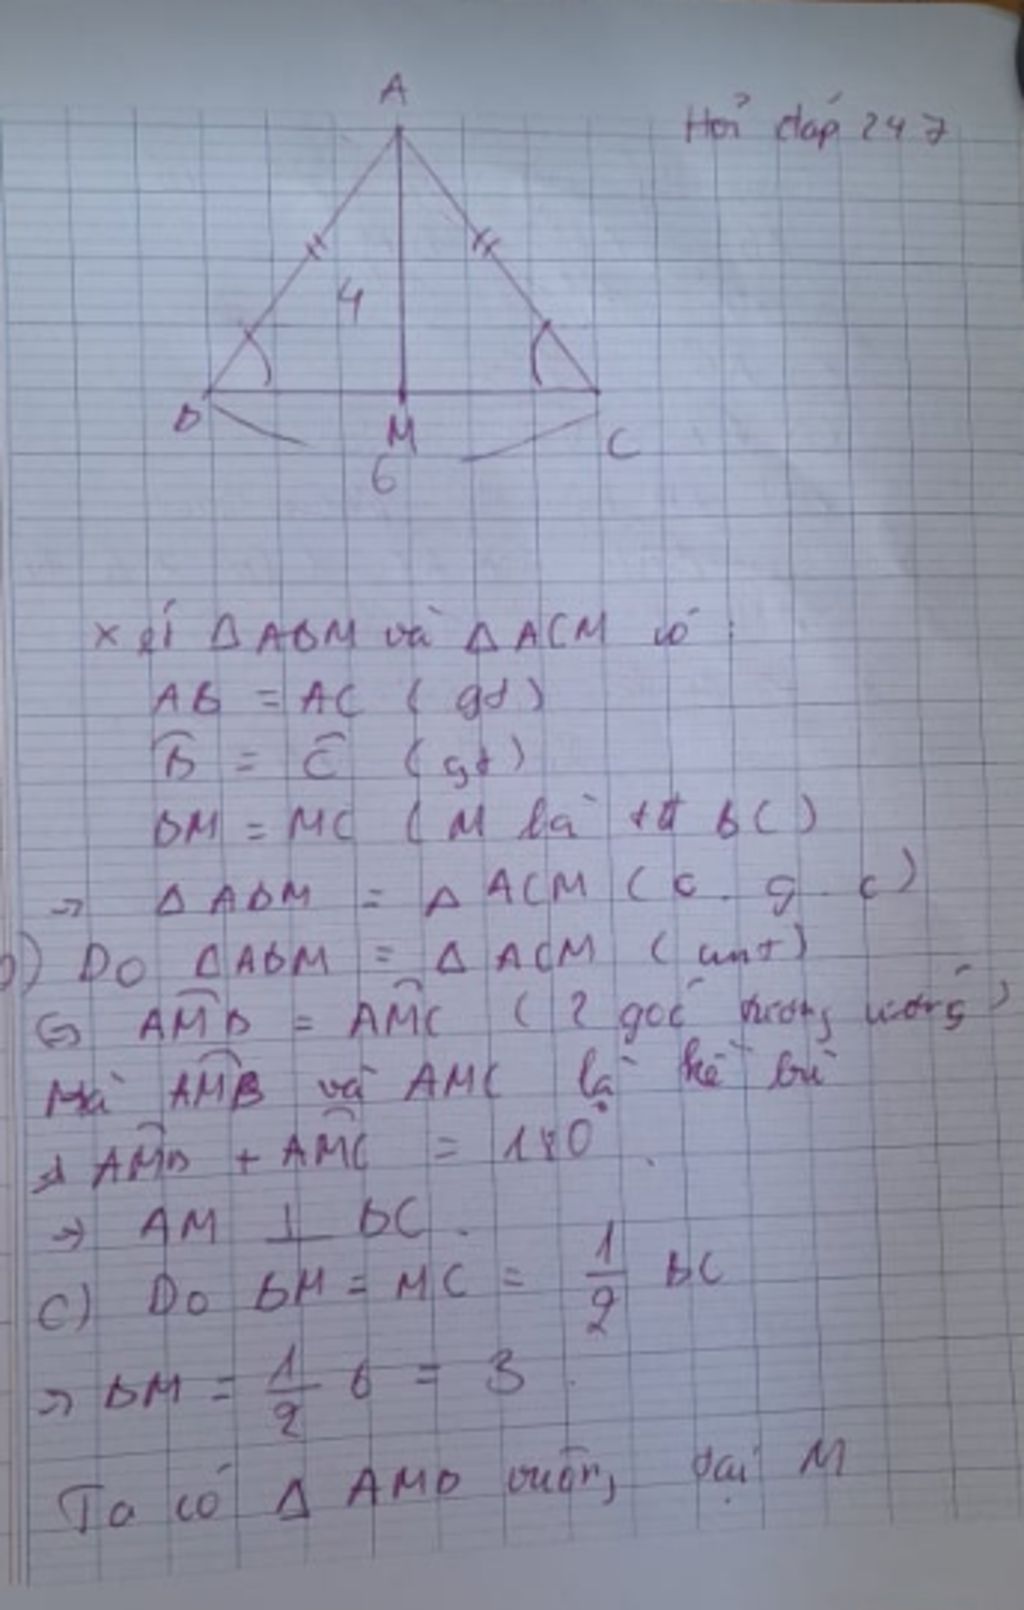 A
Hỏi đáp 247
4
B
M
C
6
Xét Δ ABM và Δ ACM có :
AB = AC ( gt )
B̂ = Ĉ ( gt )
BM = MC ( M là tđ BC )
→ Δ ABM = Δ ACM ( c . g . c )
b) Do Δ ABM = Δ ACM ( cmt )
⇔ AMB = AMC ( 2 góc tương ứng )
Mà AMB và AMC là kề bù
⇒ AMB + AMC = 180° .
→ AM ⊥ BC .
C) Do BM = MC = 1/2 BC
→ BM = 1/2 6 = 3 .
Ta có Δ AMB vuông tại M